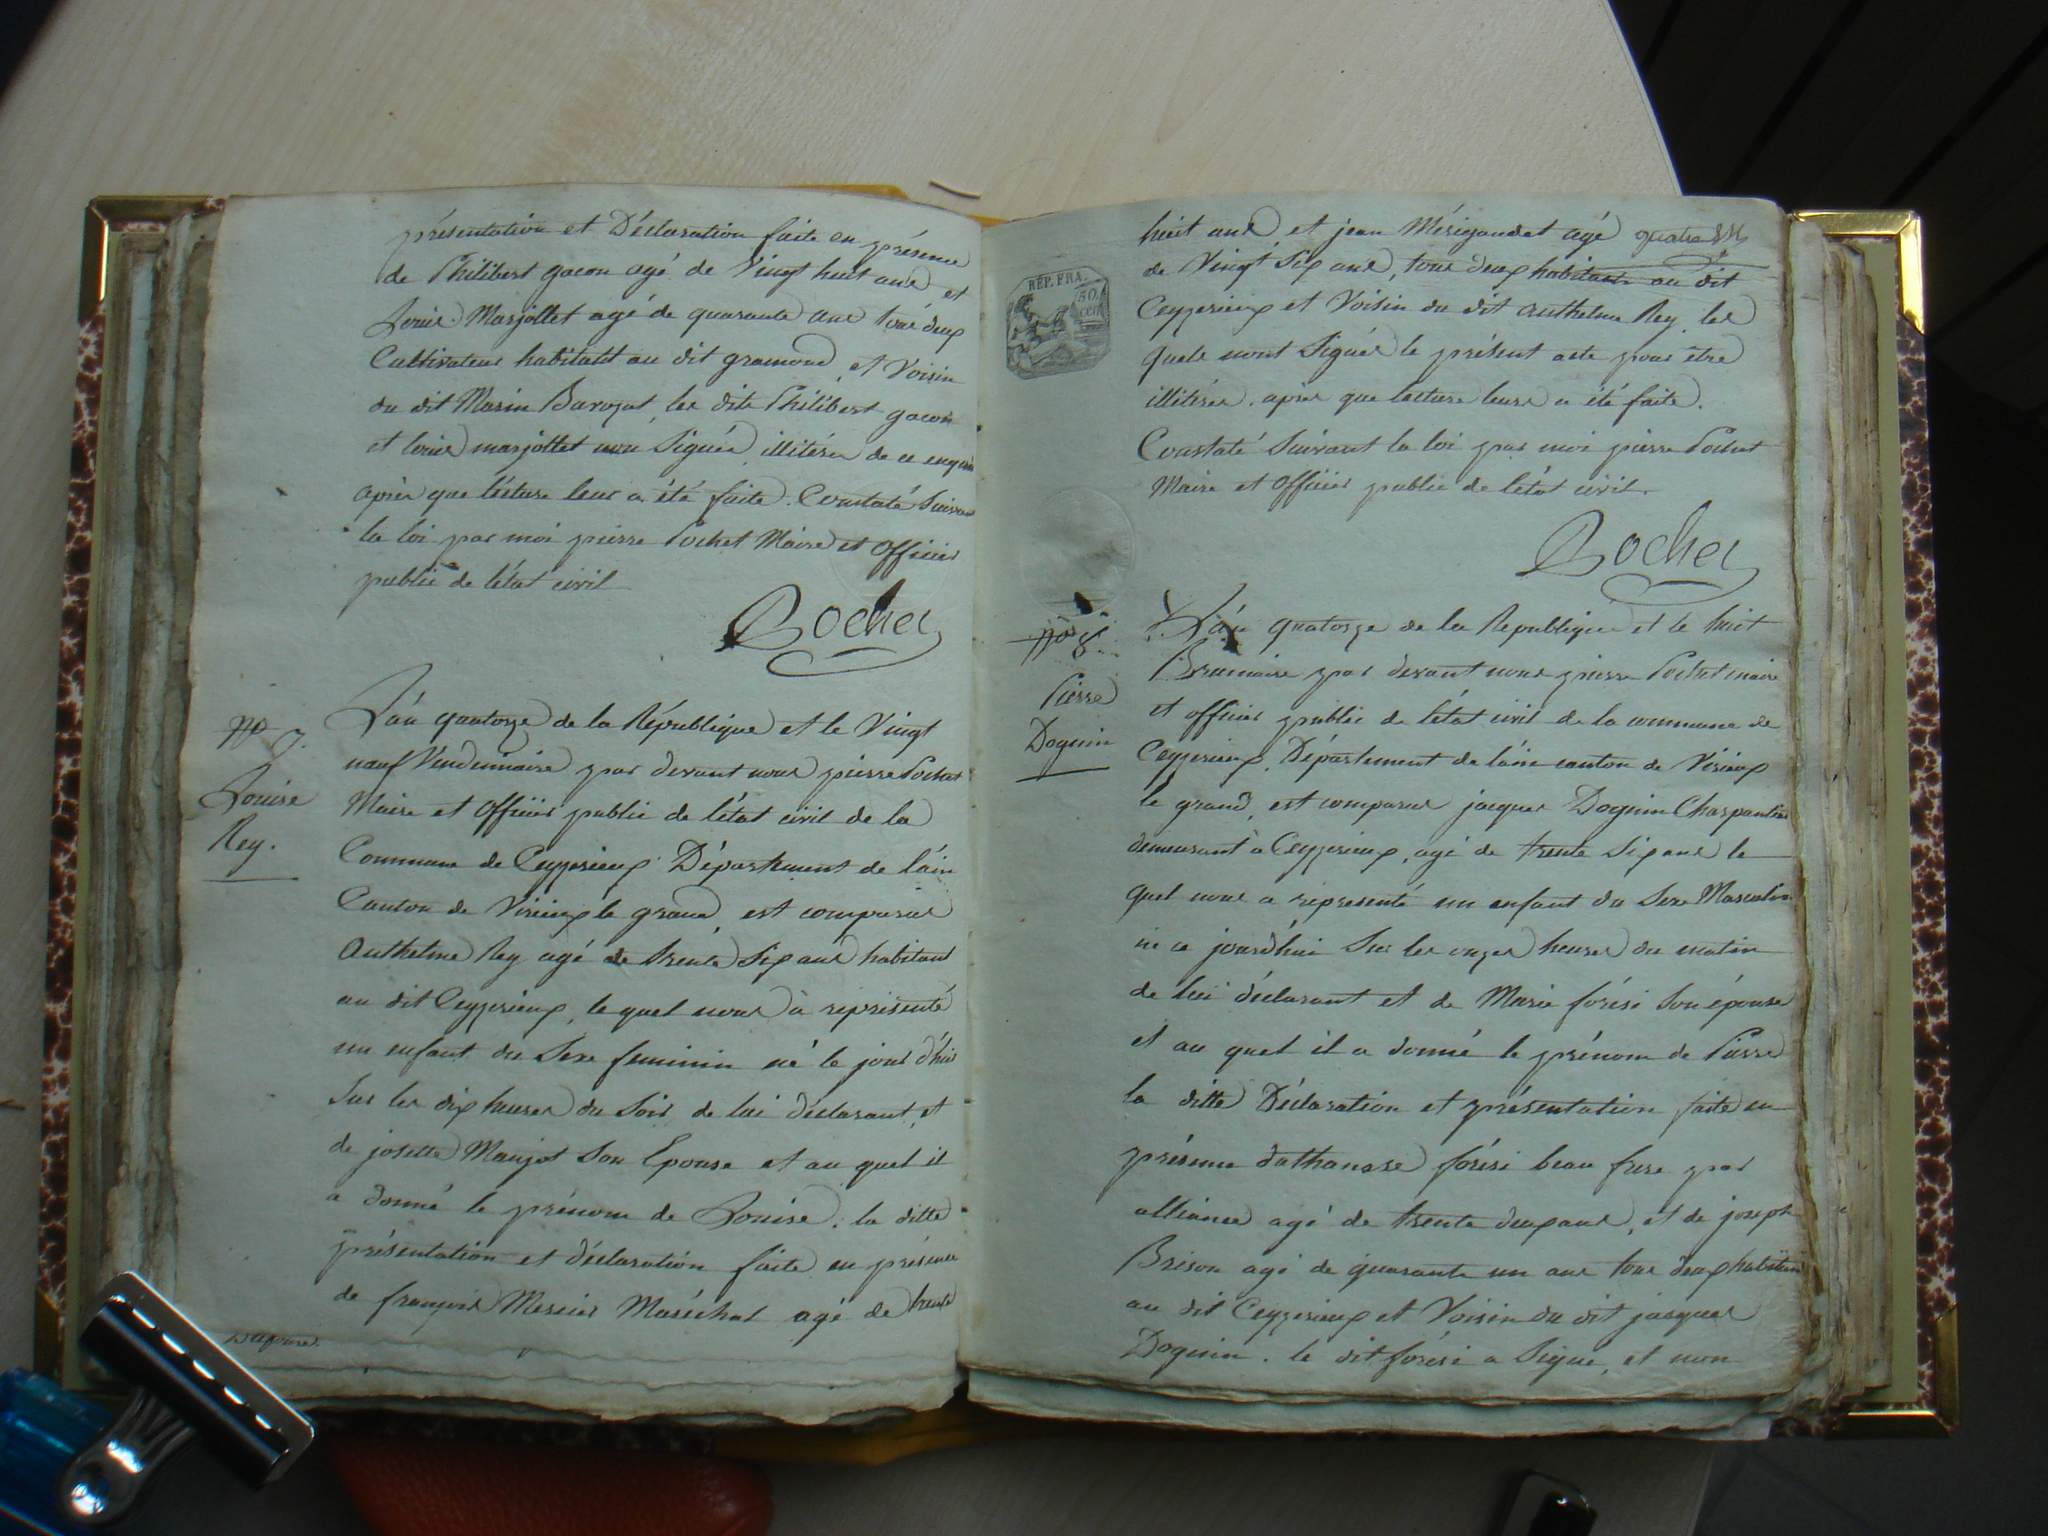 présentation et Déclaration faite en présence
de Philibert gacon agé de Vingt huit ans et
Louis Marjollet agé de quarante ans tous deux
Cultivateur habitant au dit gramond et Voisin
du dit Marin Barozat les dits Philibert gacon
et louis marjollet non Signés illitérés de ce enquis
après que lécture leur a été faite. Constaté Suivant
la loi par moi pierre Pochet Maire et Officier
public de létat civil
Pochet
No 7.
Louise
Rey.
L'an quatorze de la République et le Vingt
neuf Vendemiaire par devant nous pierre Pochet
Maire et Officier public de létat civil de la
Commune de Ceyzerieux Département de l'ain
Canton de Virieux le grand, est comparus
Anthelme Rey agé de trente Six ans habitant
au dit Ceyzerieux, le quel nous à réprésenté
un enfant du Sexe feminin né le jour d'hier
Sur les dix heures du Soir de lui déclarant, et
de josette Manjot Son Epouse et au quel il
a donné le prénom de Louise: la ditte
présentation et déclaration faite en présence
de françois Mercier Maréchal agé de trente
REP. FRA.
50
cen
huit ans et jean Mérigaudet agé quatre
de Vingt Six ans, tous deux habitant au dit
Ceyzerieux et Voisin du dit Anthelme Rey les
quels nont Signés le présent acte pour être
illitérés. après que lecture leurs a été faite.
Constaté Suivant la loi par moi pierre Pochet
Maire et Officier public de létat civil.
Pochet
No 8.
Pierre
Doguin
L'an quatorze de la Republique et le huit
Brumaire par devant nous pierre Pochet maire
et officier public de létat civil de la commune de
Ceyzerieux, Département de l'ain canton de Virieux
le grand, est comparus jacques Doguin Charpantier
demeurant à Ceyzerieux, agé de trente Six ans le
quel nous a répresenté un enfant du Sexe Masculin
né ce jourd'hui Sur les onzes heures du matin
de lui déclarant et de Marie forési Son épouse
et au quel il a donné le prénom de Pierre
la ditte Déclaration et présentation faite en
présence dathanase forési beau frere par
alliance agé de trente deux ans, et de joseph
Brison agé de quarante un ans tous deux habitant
au dit Ceyzerieux et Voisin du dit jacques
Doguin. le dit forési a Signé, et non